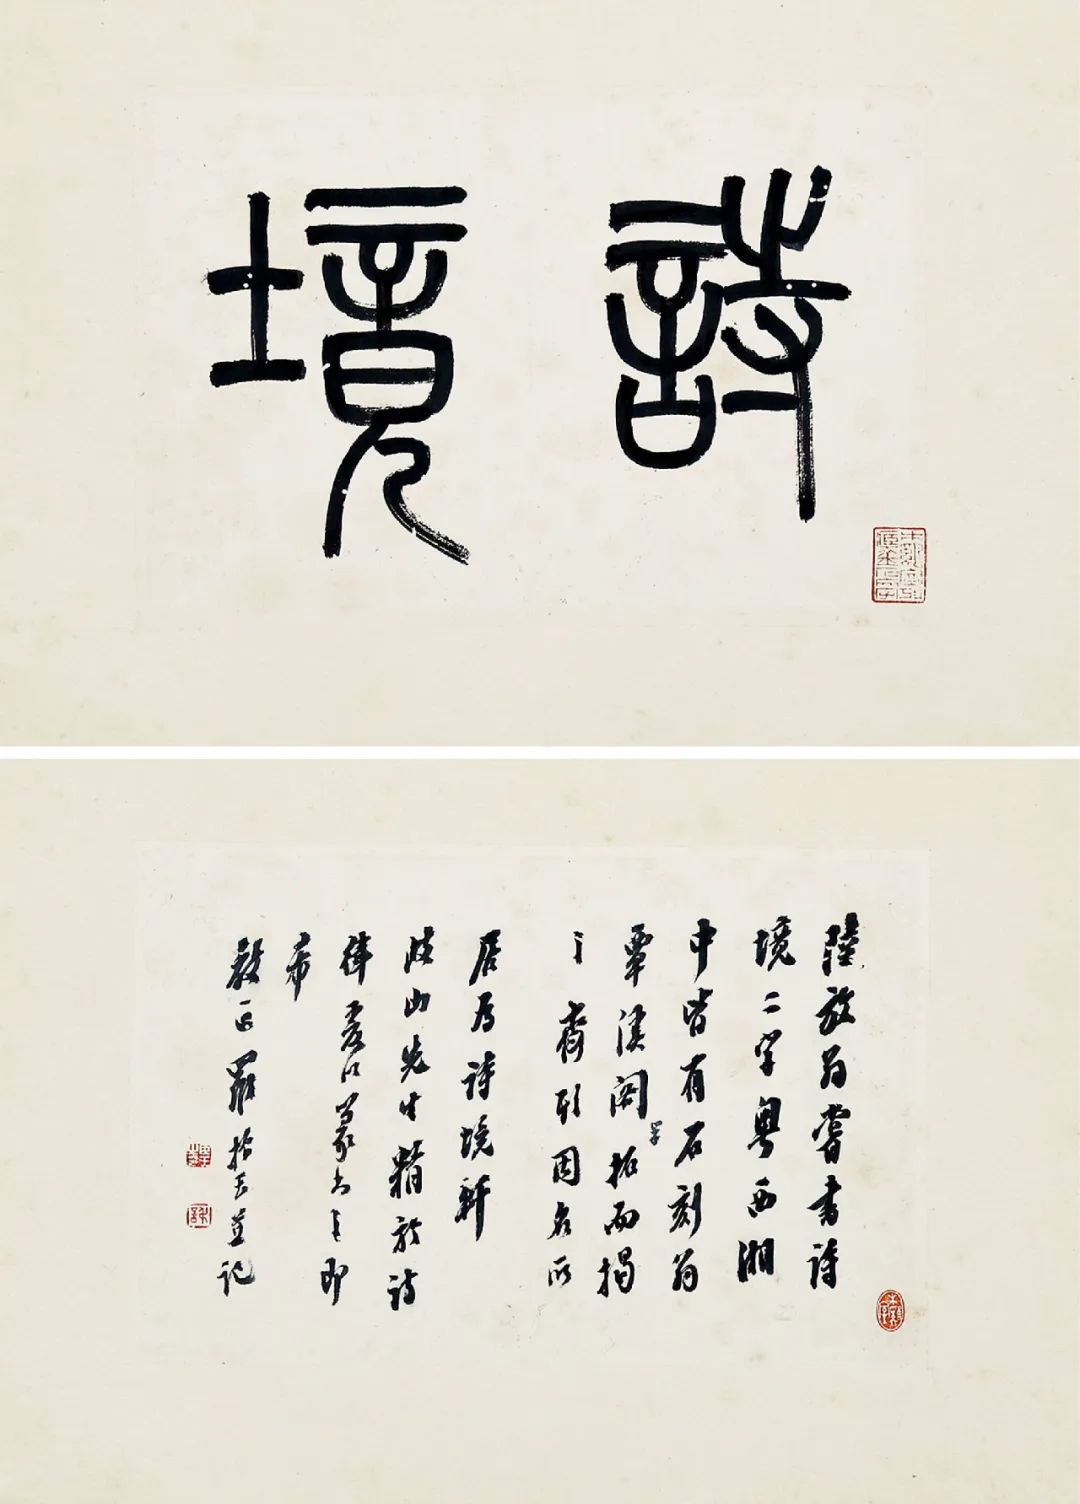 詩境
陸放翁嘗書詩
境二字粵西湘
中皆有石刻翁
覃溪閣學拓而揭
之齋頭因名所
居為詩境軒
先生精於詩
律爰以篆書之即
希
教正羅惇㬊並記